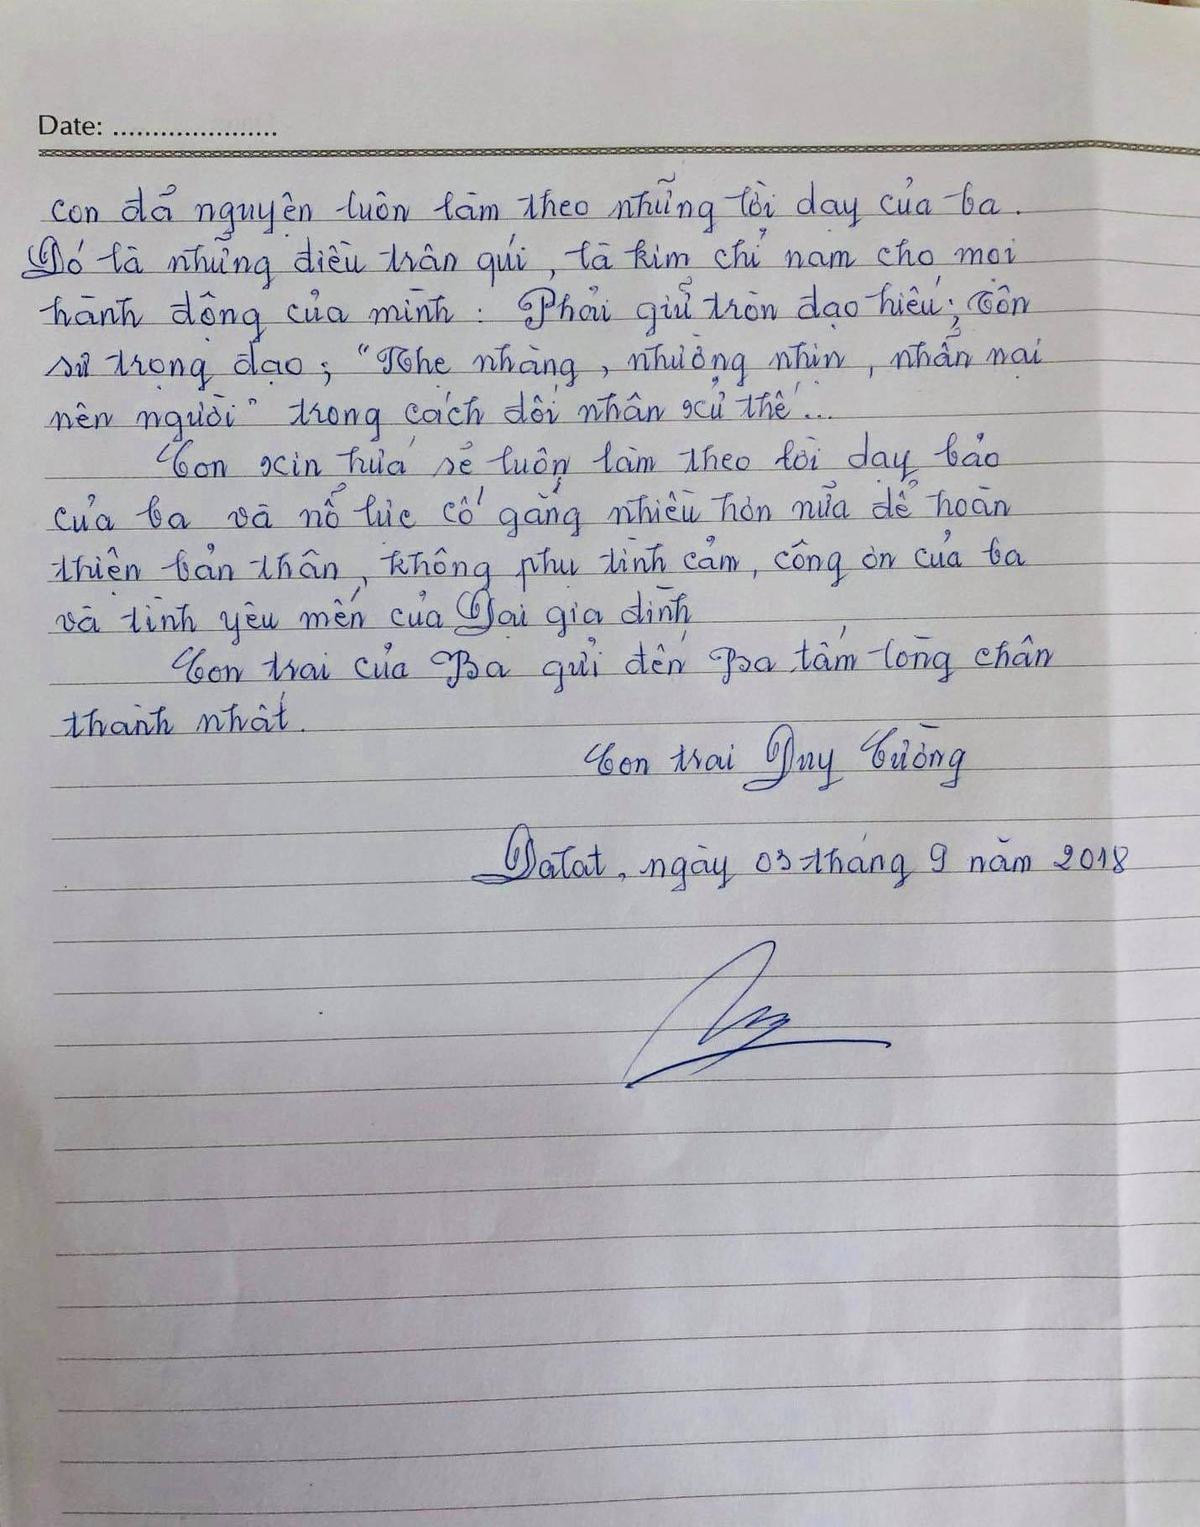 Date: .....................
con đã nguyện luôn làm theo những lời dạy của ba.
Đó là những điều trân quí, là kim chỉ nam cho mọi
hành động của mình: Phải giữ tròn đạo hiếu; Tôn
sư trọng đạo; "Nhẹ nhàng, nhường nhịn, nhẫn nại
nên người" trong cách đối nhân xử thế...
Con xin hứa sẽ luôn làm theo lời dạy bảo
của ba và nổ lực cố gắng nhiều hơn nữa để hoàn
thiện bản thân, không phụ tình cảm, công ơn của ba
và tình yêu mến của Đại gia đình
Con trai của Ba gửi đến Ba tấm lòng chân
thành nhất.
Con trai Duy Cường
Dalat, ngày 03 tháng 9 năm 2018